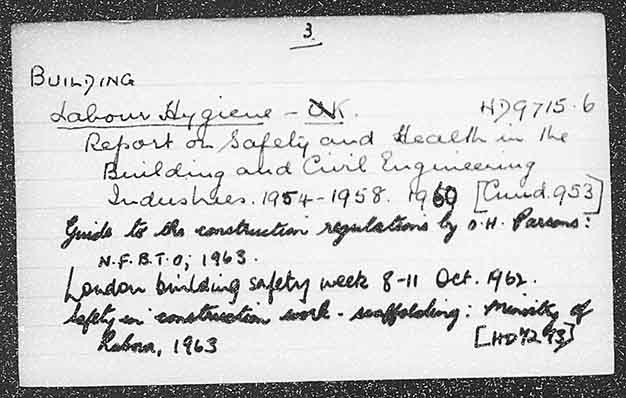 3
BUILDING
Labour Hygiene - UK. HD9715.6
Report on Safety and Health in the
Building and Civil Engineering
Industries. 1954-1958. 1960 [Cmnd.953]
Guide to the construction regulations by O.H. Parsons:
N.F.B.T.O; 1963.
London building safety week 8-11 Oct. 1962.
Safety in construction work - scaffolding: Ministry of
Labour, 1963 [HD7273]